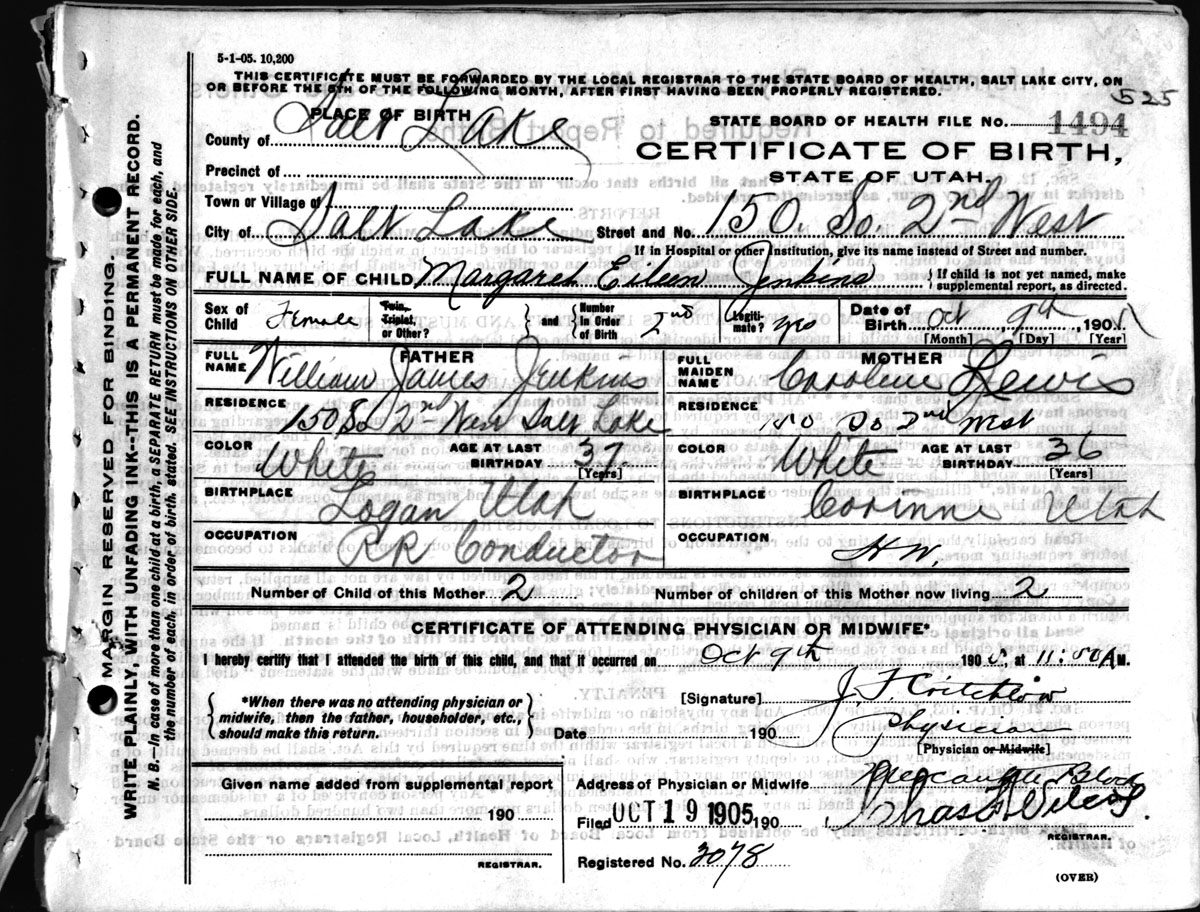 5-1-05. 10,200
THIS CERTIFICATE MUST BE FORWARDED BY THE LOCAL REGISTRAR TO THE STATE BOARD OF HEALTH, SALT LAKE CITY, ON
OR BEFORE THE 5TH OF THE FOLLOWING MONTH, AFTER FIRST HAVING BEEN PROPERLY REGISTERED.
525
PLACE OF BIRTH
STATE BOARD OF HEALTH FILE NO. 1494
County of Salt Lake
CERTIFICATE OF BIRTH,
STATE OF UTAH.
Precinct of
Town or Village of
City of Salt Lake Street and No. 150. So. 2nd West
If in Hospital or other Institution, give its name instead of Street and number.
FULL NAME OF CHILD Margaret Eileen Jenkins { If child is not yet named, make supplemental report, as directed.
Sex of Child Female Twin, Triplet, or Other? } and { Number in Order of Birth 2nd Legiti- mate? yes Date of Birth Oct 9th, 1905
[Month] [Day] [Year]
FATHER
FULL NAME William James Jenkins
MOTHER
FULL MAIDEN NAME Caroline Lewis
RESIDENCE 150 So 2nd West Salt Lake
RESIDENCE 150 So 2nd West
COLOR White AGE AT LAST BIRTHDAY 37 [Years]
COLOR White AGE AT LAST BIRTHDAY 36 [Years]
BIRTHPLACE Logan Utah
BIRTHPLACE Corinne Utah
OCCUPATION RR Conductor
OCCUPATION H W.
Number of Child of this Mother 2 Number of children of this Mother now living 2
CERTIFICATE OF ATTENDING PHYSICIAN OR MIDWIFE*
I hereby certify that I attended the birth of this child, and that it occurred on Oct 9th 1905, at 11:50 AM.
{ *When there was no attending physician or midwife, then the father, householder, etc., should make this return. }
[Signature] J. F. Critchlow
Date 190 Physician
[Physician or Midwife]
Given name added from supplemental report
190
REGISTRAR.
Address of Physician or Midwife Block
Filed OCT 19 1905 190 Chas F Wilcox
REGISTRAR.
Registered No. 2078
(OVER)
MARGIN RESERVED FOR BINDING.
WRITE PLAINLY, WITH UNFADING INK--THIS IS A PERMANENT RECORD.
N. B.--In case of more than one child at a birth, a SEPARATE RETURN must be made for each, and
the number of each, in order of birth, stated. SEE INSTRUCTIONS ON OTHER SIDE.